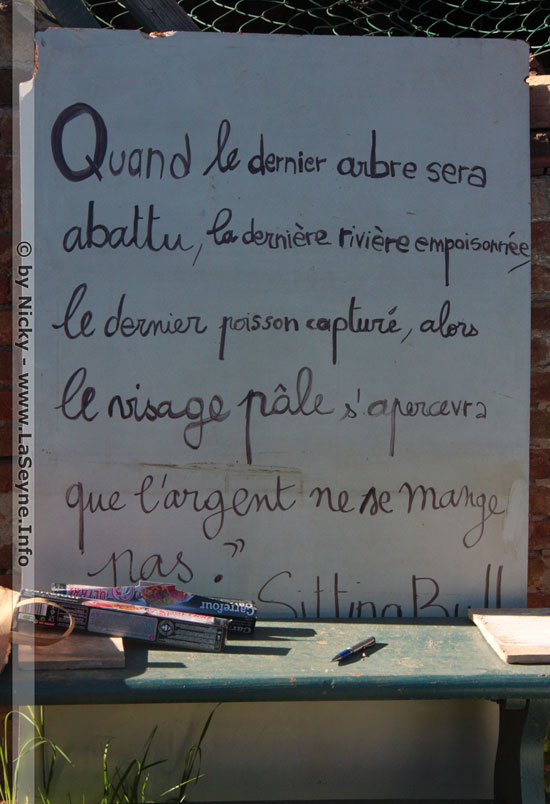 Quand le dernier arbre sera
abattu, la dernière rivière empoisonnée,
le dernier poisson capturé, alors
le visage pâle s'apercevra
que l'argent ne se mange
pas."
Sitting Bull
Carrefour
© by Nicky - www.LaSeyne.Info